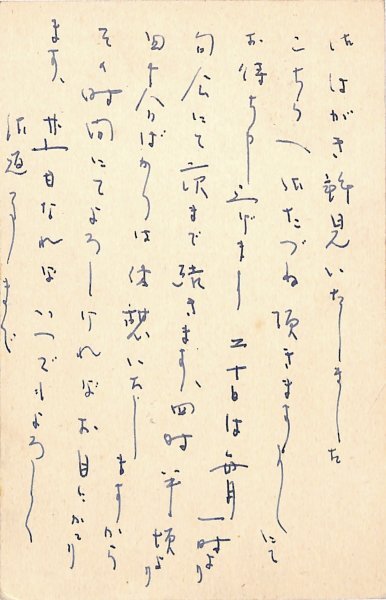 御はがき拝見いたしました
こちらへ御たづね頂きますよしにて
お待ち申上げます 二十日は毎月一時より
句会にて まで続きます、四時半頃より
四十分ばかりは休憩いたしますから
その時間にてよろしければお目にかかり
ます、廿一日なればいつでもよろしく